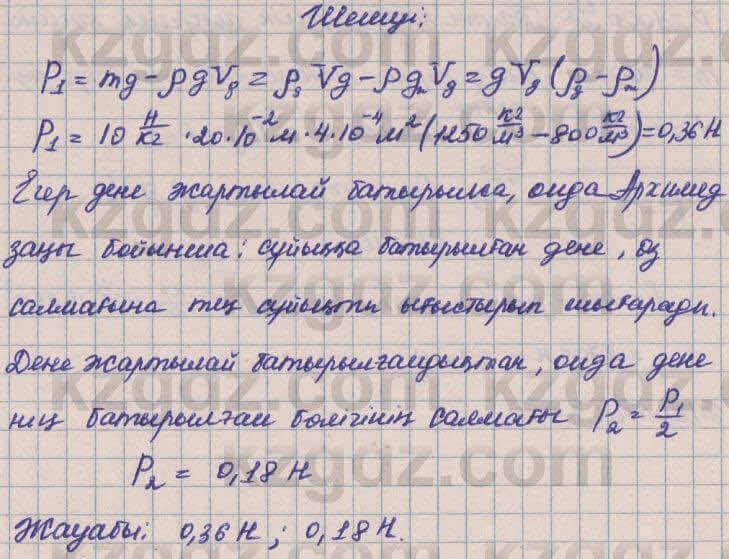 Шешуі:
P₁ = mg − ρgVg = ρg Vg − ρgmVg = gVg (ρg − ρm)
P₁ = 10 Н/кг · 20 · 10⁻² м · 4 · 10⁻⁴ м² (1250 кг/м³ − 800 кг/м³) = 0,36 Н
Егер дене жартылай батырылса, онда Архимед
заңы бойынша: сұйыққа батырылған дене, өз
салмағына тең сұйықты ығыстырып шығарады.
Дене жартылай батырылғандықтан, онда дене
нің батырылған бөлігінің салмағы P₂ = P₁/2
P₂ = 0,18 Н
Жауабы: 0,36 Н ; 0,18 Н.
kzgdz.com